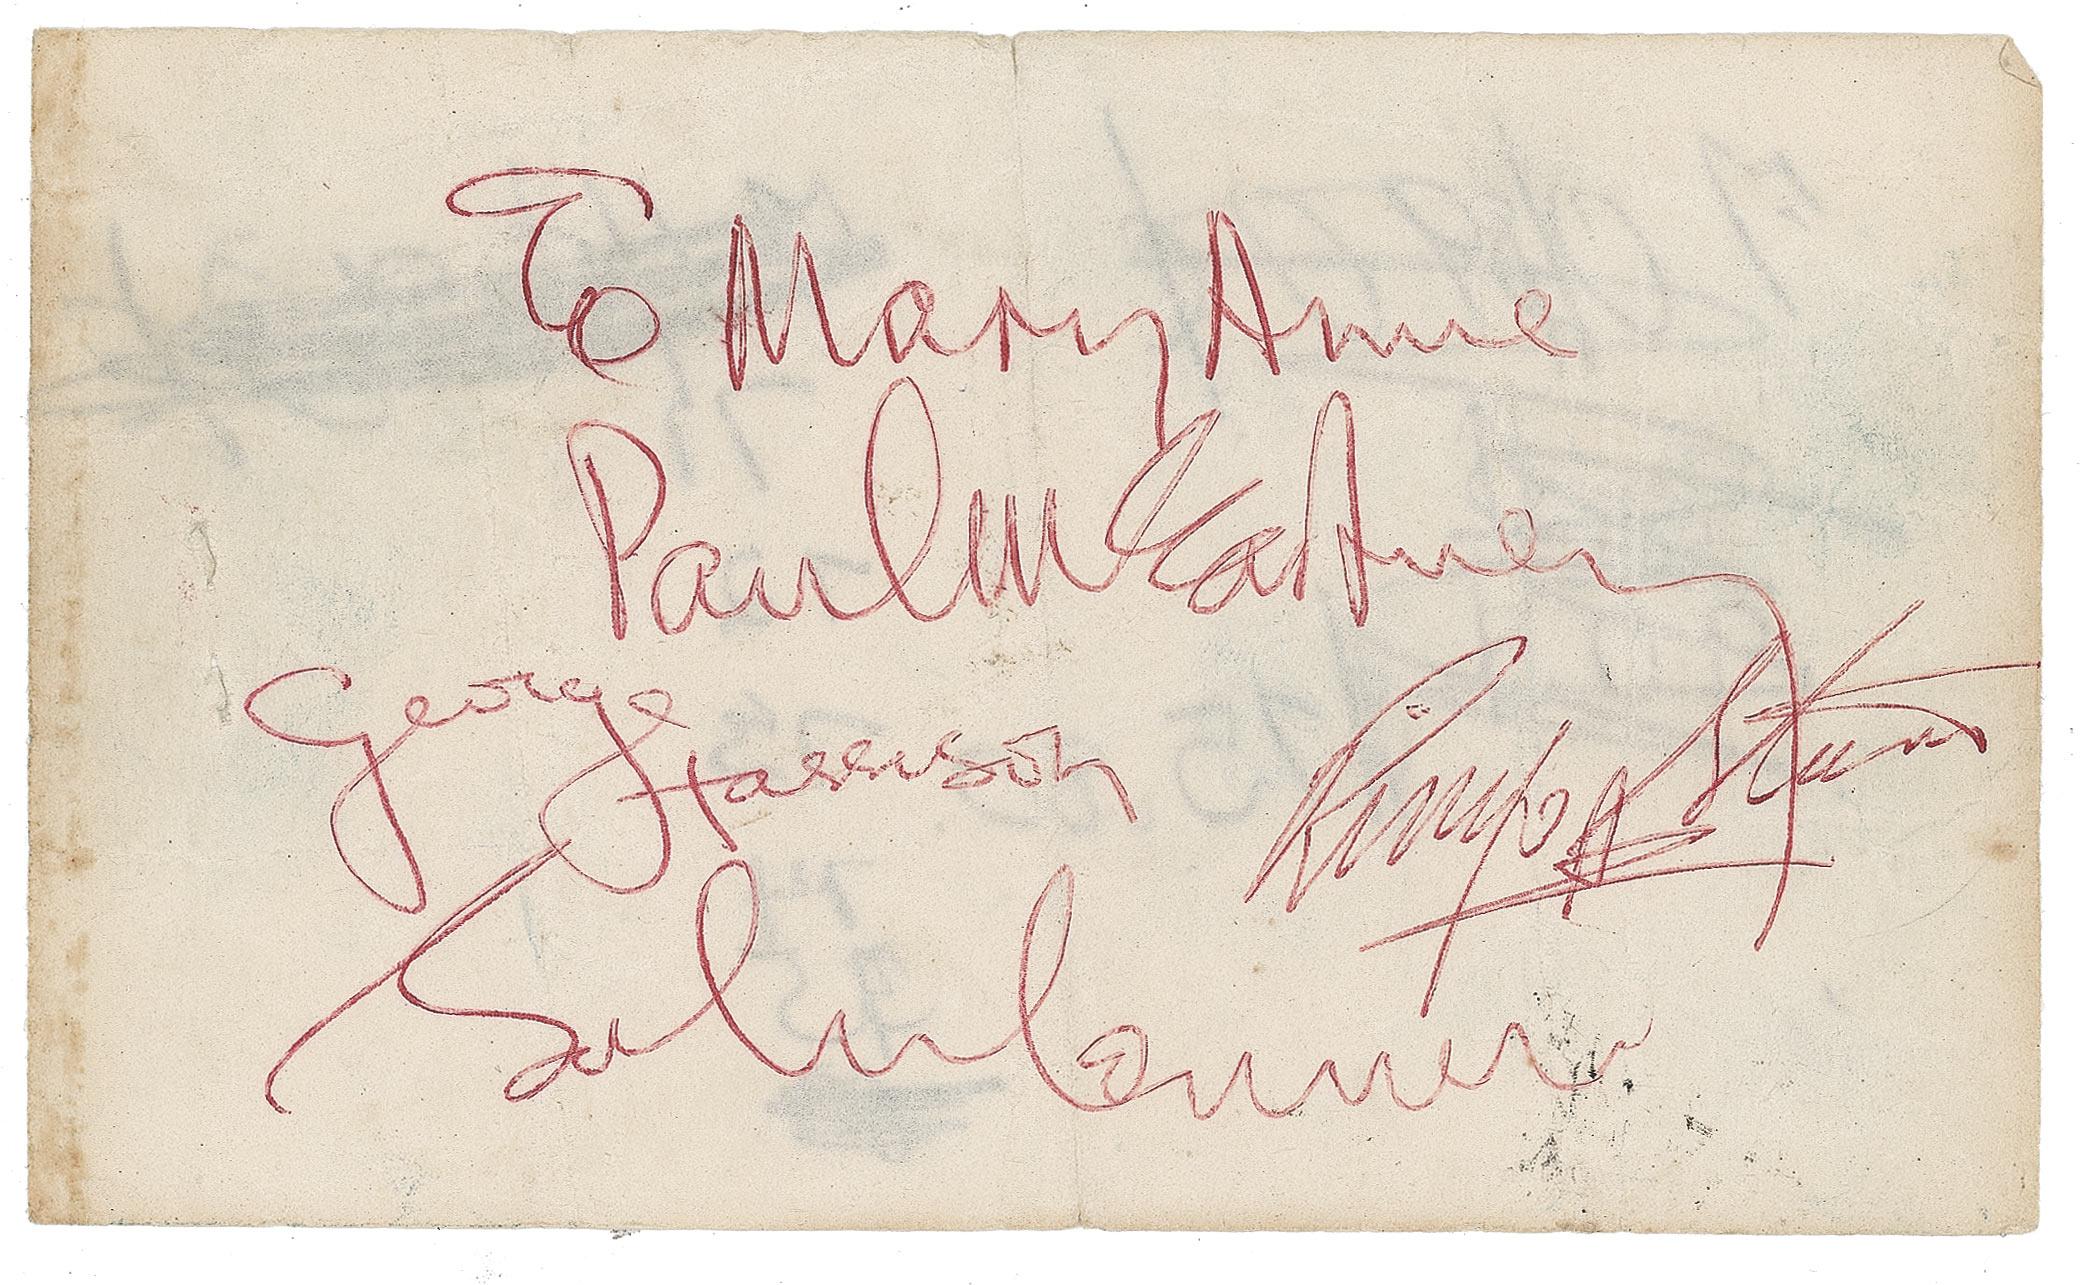 To Mary Anne
Paul McCartney
George Harrison
Ringo Starr
John Lennon